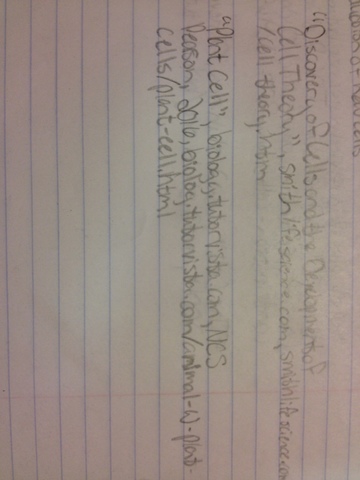 "Discovery of Cells and the Development of
Cell Theory", smithlifescience.com, smithlifescience.com
/celltheory.htm
"Plant Cell", biology.tutorvista.com, NCS
Pearson, 2016, biology.tutorvista.com/animal-w-plant-
cells/plant-cell.html